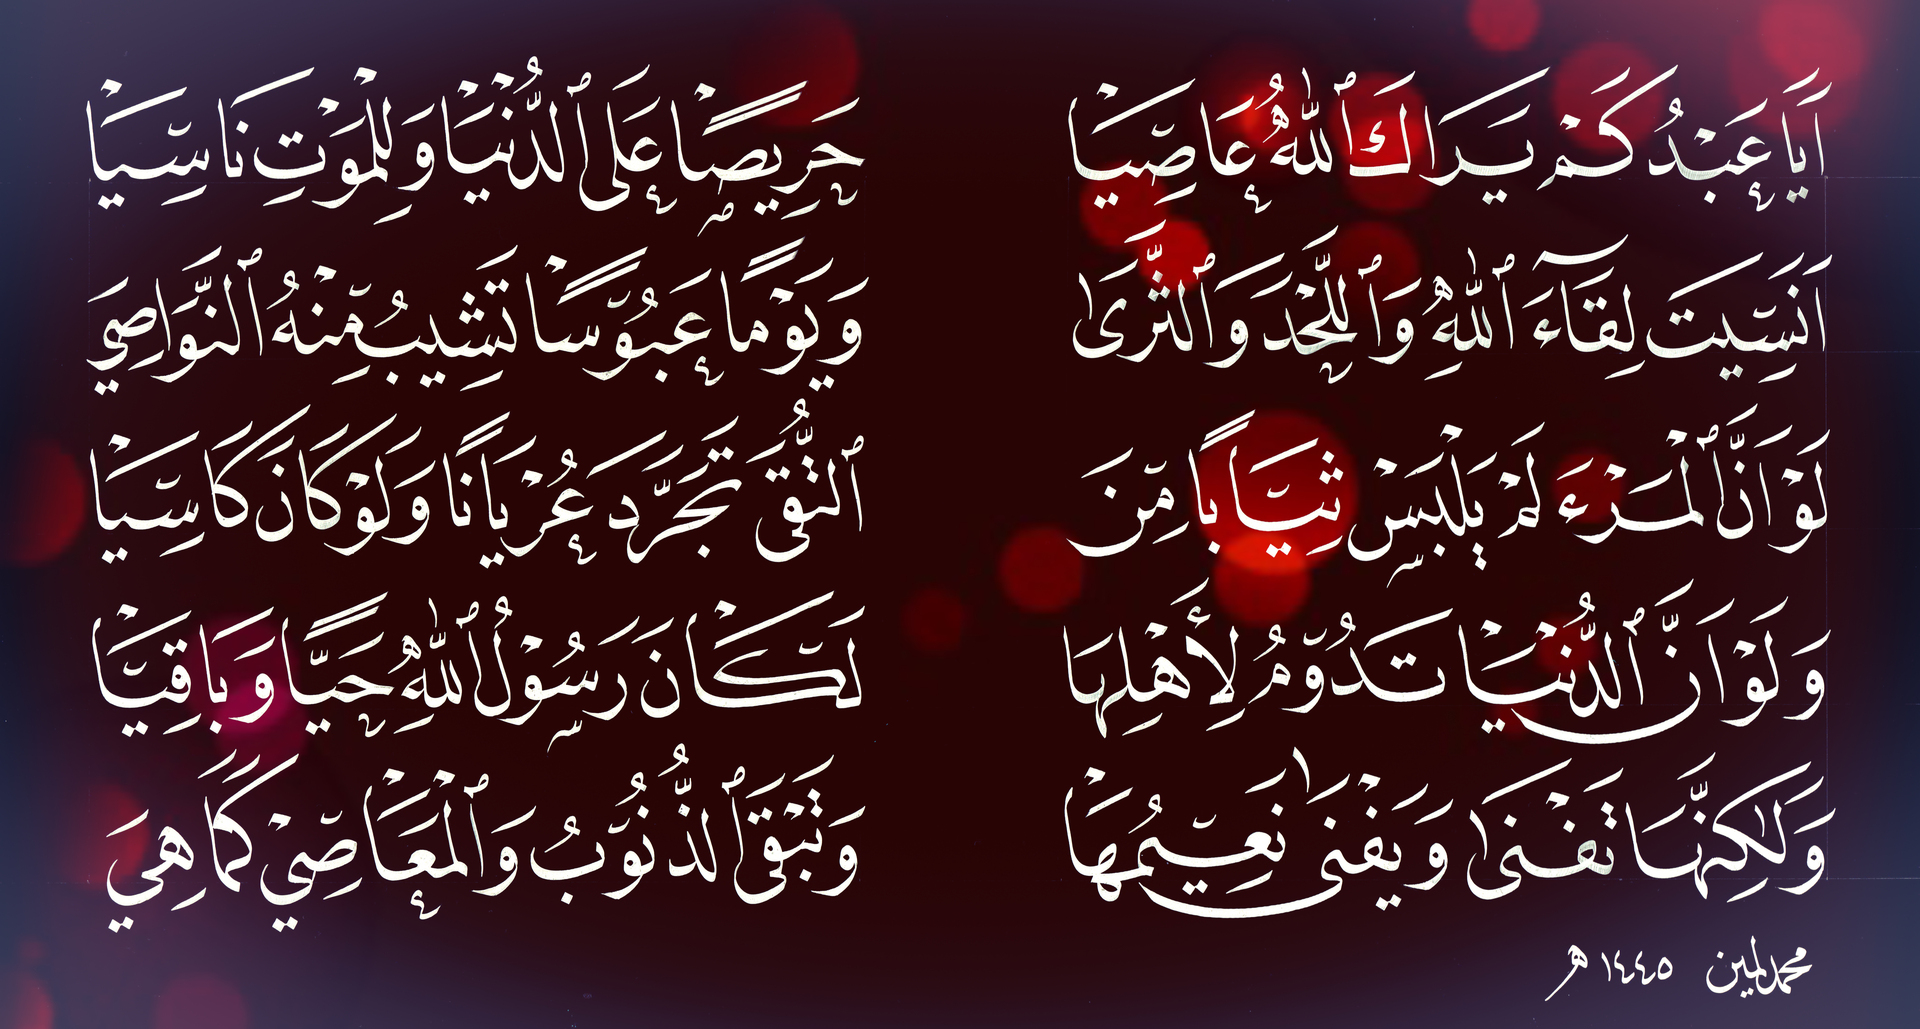 اَيَا عَبْدُ كَمْ يَرَاكَ ٱللّٰهُ عَاصِيَا
حَرِيصًا عَلَى ٱلدُّنْيَا وَلِلْمَوْتِ نَاسِيَا
اَنَسِيتَ لِقَآءَ ٱللّٰهِ وَٱللَّحْدَ وَٱلثَّرَىٰ
وَيَوْمًا عَبُوسًا تَشِيبُ مِنْهُ ٱلنَّوَاصِيَ
لَوْ اَنَّ ٱلْمَرْءَ لَمْ يَلْبَسْ ثِيَابًا مِنَ
ٱلتُّقَى تَجَرَّدَ عُرْيَانًا وَلَوْ كَانَ كَاسِيَا
وَلَوْ اَنَّ ٱلدُّنْيَا تَدُوْمُ لِأَهْلِهَا
لَكَانَ رَسُوْلُ ٱللّٰهِ حَيًّا وَبَاقِيَا
وَلٰكِنَّهَا تَفْنَىٰ وَيَفْنَىٰ نَعِيمُهَا
وَتَبْقَى ٱلذُّنُوْبُ وَٱلْمَعَاصِيْ كَمَا هِيَ
محمد امين ١٤٤٥ ه